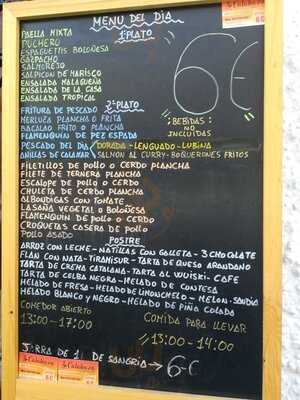 MENU DEL DIA
1º PLATO
PAELLA MIXTA
PUCHERO
ESPAGUETTIS BOLOÑESA
GAZPACHO
SALMOREJO
SALPICON DE MARISCO
ENSALADA MALAGUEÑA
ENSALADA DE LA CASA
ENSALADA TROPICAL
6€
¡BEBIDAS: NO INCLUIDAS
2º PLATO
FRITURA DE PESCADO
MERLUZA PLANCHA O FRITA
BACALAO FRITO O PLANCHA
FLAMENQUIN DE PEZ ESPADA
PESCADO DEL DIA / DORADA - LENGUADO - LUBINA
ANILLAS DE CALAMAR \ SALMON AL CURRY - BOQUERONES FRITOS
FILETILLOS DE POLLO O CERDO PLANCHA
FILETE DE TERNERA PLANCHA
ESCALOPE DE POLLO O CERDO
CHULETA DE CERDO PLANCHA
ALBONDIGAS CON TOMATE
LASAÑA VEGETAL O BOLOÑESA
FLAMENQUIN DE POLLO O CERDO
CROQUETAS CASERA DE POLLO
POLLO ASADO
POSTRE
ARROZ CON LECHE - NATILLAS CON GALLETA - 3 CHOCOLATE
FLAN CON NATA - TIRAMISUR - TARTA DE QUESO ARANDANO
TARTA DE CREMA CATALANA - TARTA AL WUISKI - CAFE
TARTA DE CELBA NEGRA - HELADO DE CONTESA
HELADO DE FRESA - HELADO DE LIMONCHELO - MELON - SANDIA
HELADO BLANCO Y NEGRO - HELADO DE PIÑA COLADA
COMEDOR ABIERTO
13:00 - 17:00
COMIDA PARA LLEVAR
→ 13:00 - 14:00
JARRA DE 1L DE SANGRIA → 6€